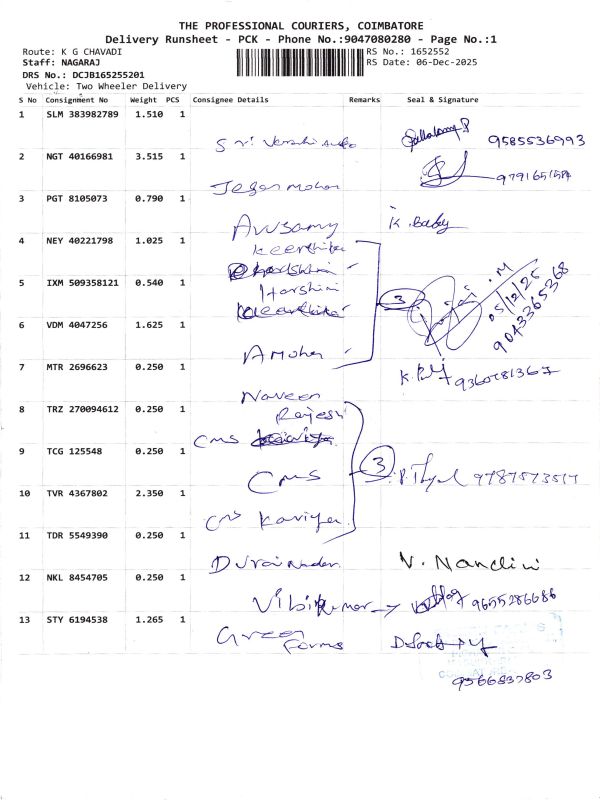 THE PROFESSIONAL COURIERS, COIMBATORE
Delivery Runsheet - PCK - Phone No.:9047080280 - Page No.:1
Route: K G CHAVADI RS No.: 1652552
Staff: NAGARAJ RS Date: 06-Dec-2025
DRS No.: DCJB165255201
Vehicle: Two Wheeler Delivery
S No Consignment No Weight PCS Consignee Details Remarks Seal & Signature
1 SLM 383982789 1.510 1
9585536993
2 NGT 40166981 3.515 1
Jegan mohan
3 PGT 8105073 0.790 1
K. Baby
4 NEY 40221798 1.025 1
Keerthika
5 IXM 509358121 0.540 1
Harshini
3
05/12/25
9043365368
6 VDM 4047256 1.625 1
A Mohan
7 MTR 2696623 0.250 1
Naveen
8 TRZ 270094612 0.250 1
Rajesh
CMS
9 TCG 125548 0.250 1
CMS
3
10 TVR 4367802 2.350 1
CMS Kaviya
11 TDR 5549390 0.250 1
V. Nandini
12 NKL 8454705 0.250 1
9655286686
13 STY 6194538 1.265 1
Green
Farms
9566837803